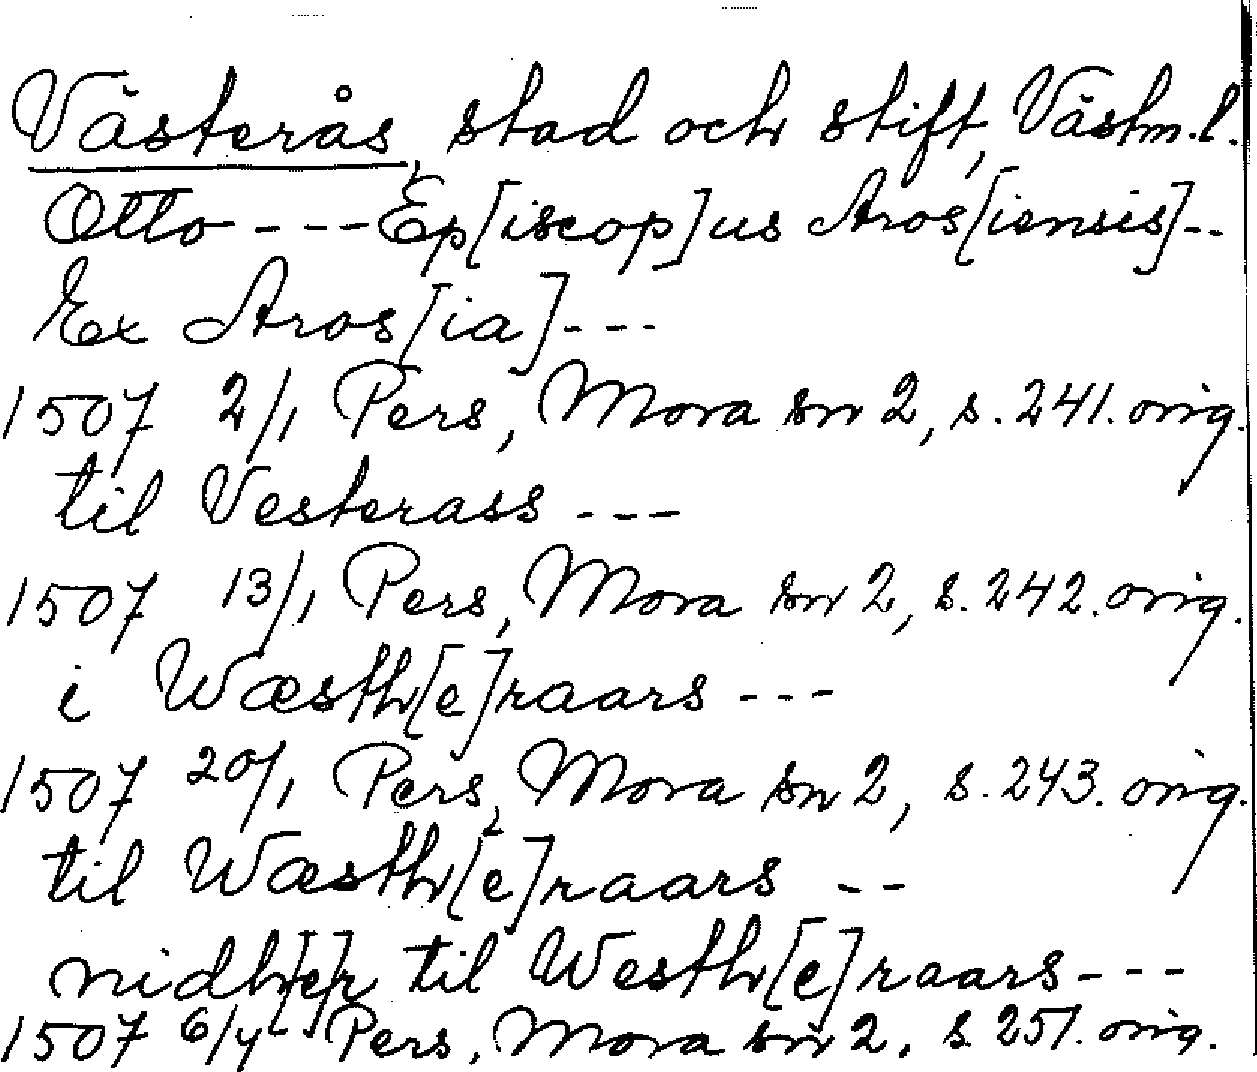 Västerås, stad och stift, Västm. l.
Otto - - - Ep[iscop]us Aros[iensis] - -
Ex Aros[ia] - - -
1507 2/1 Pers, Mora sn 2, s. 241. orig.
til Vesterass - - -
1507 13/1 Pers, Mora sn 2, s. 242. orig.
i Wæsth[e]raars - - -
1507 20/1 Pers, Mora sn 2, s. 243. orig.
til Wæsth[e]raars - -
nidh[e]r til Westh[e]raars - - -
1507 6/4 Pers, Mora sn 2, s. 251. orig.